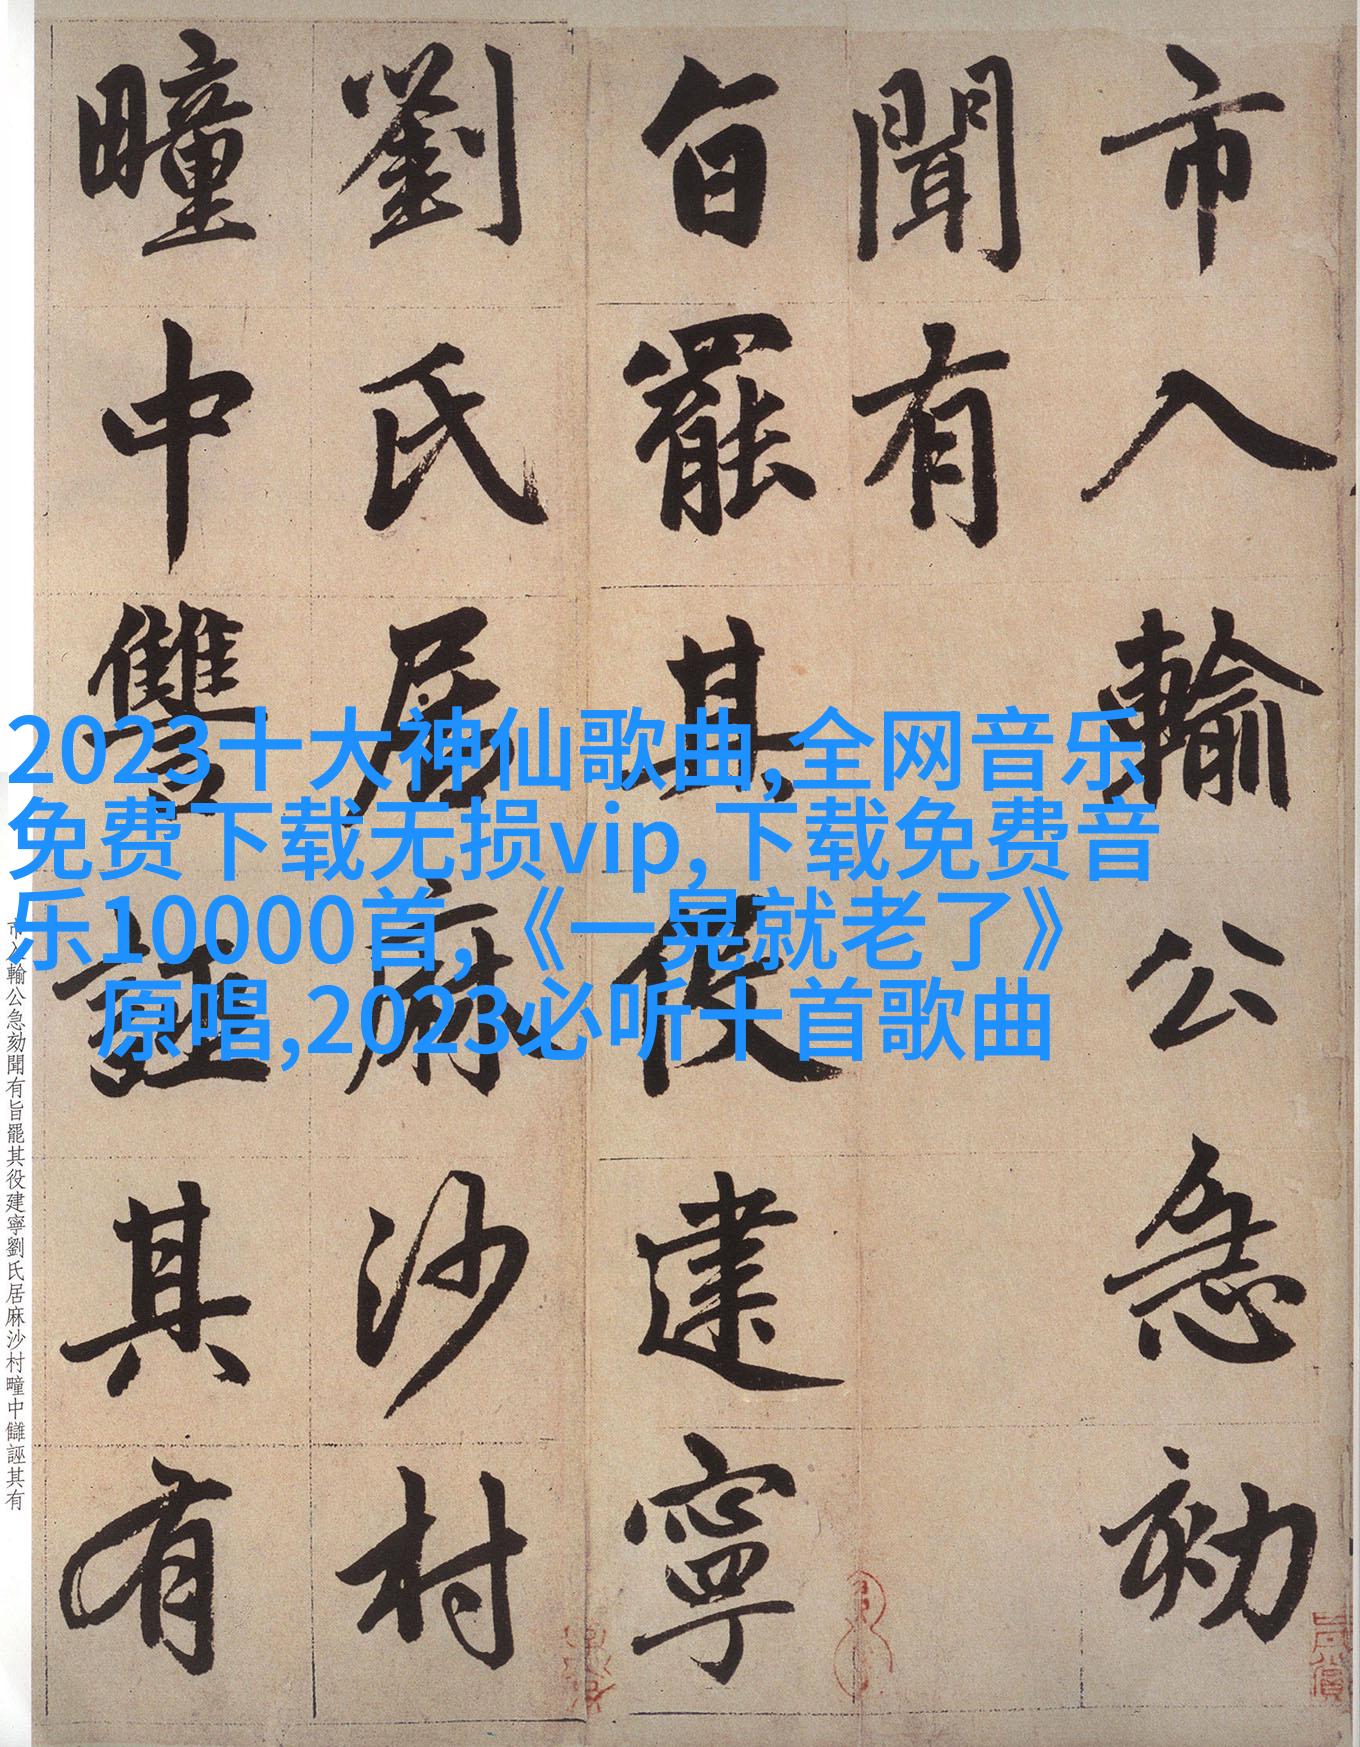 市入輸公急劾
聞有
旨罷其役建寧
劉氏居麻沙村
疃中讐誣其有
2023十大神仙歌曲,全网音乐
免费下载无损vip,下载免费音
乐10000首,《一晃就老了》
原唱,2023必听十首歌曲
市入輸公急劾聞有旨罷其役建寧劉氏居麻沙村疃中讎誣其有